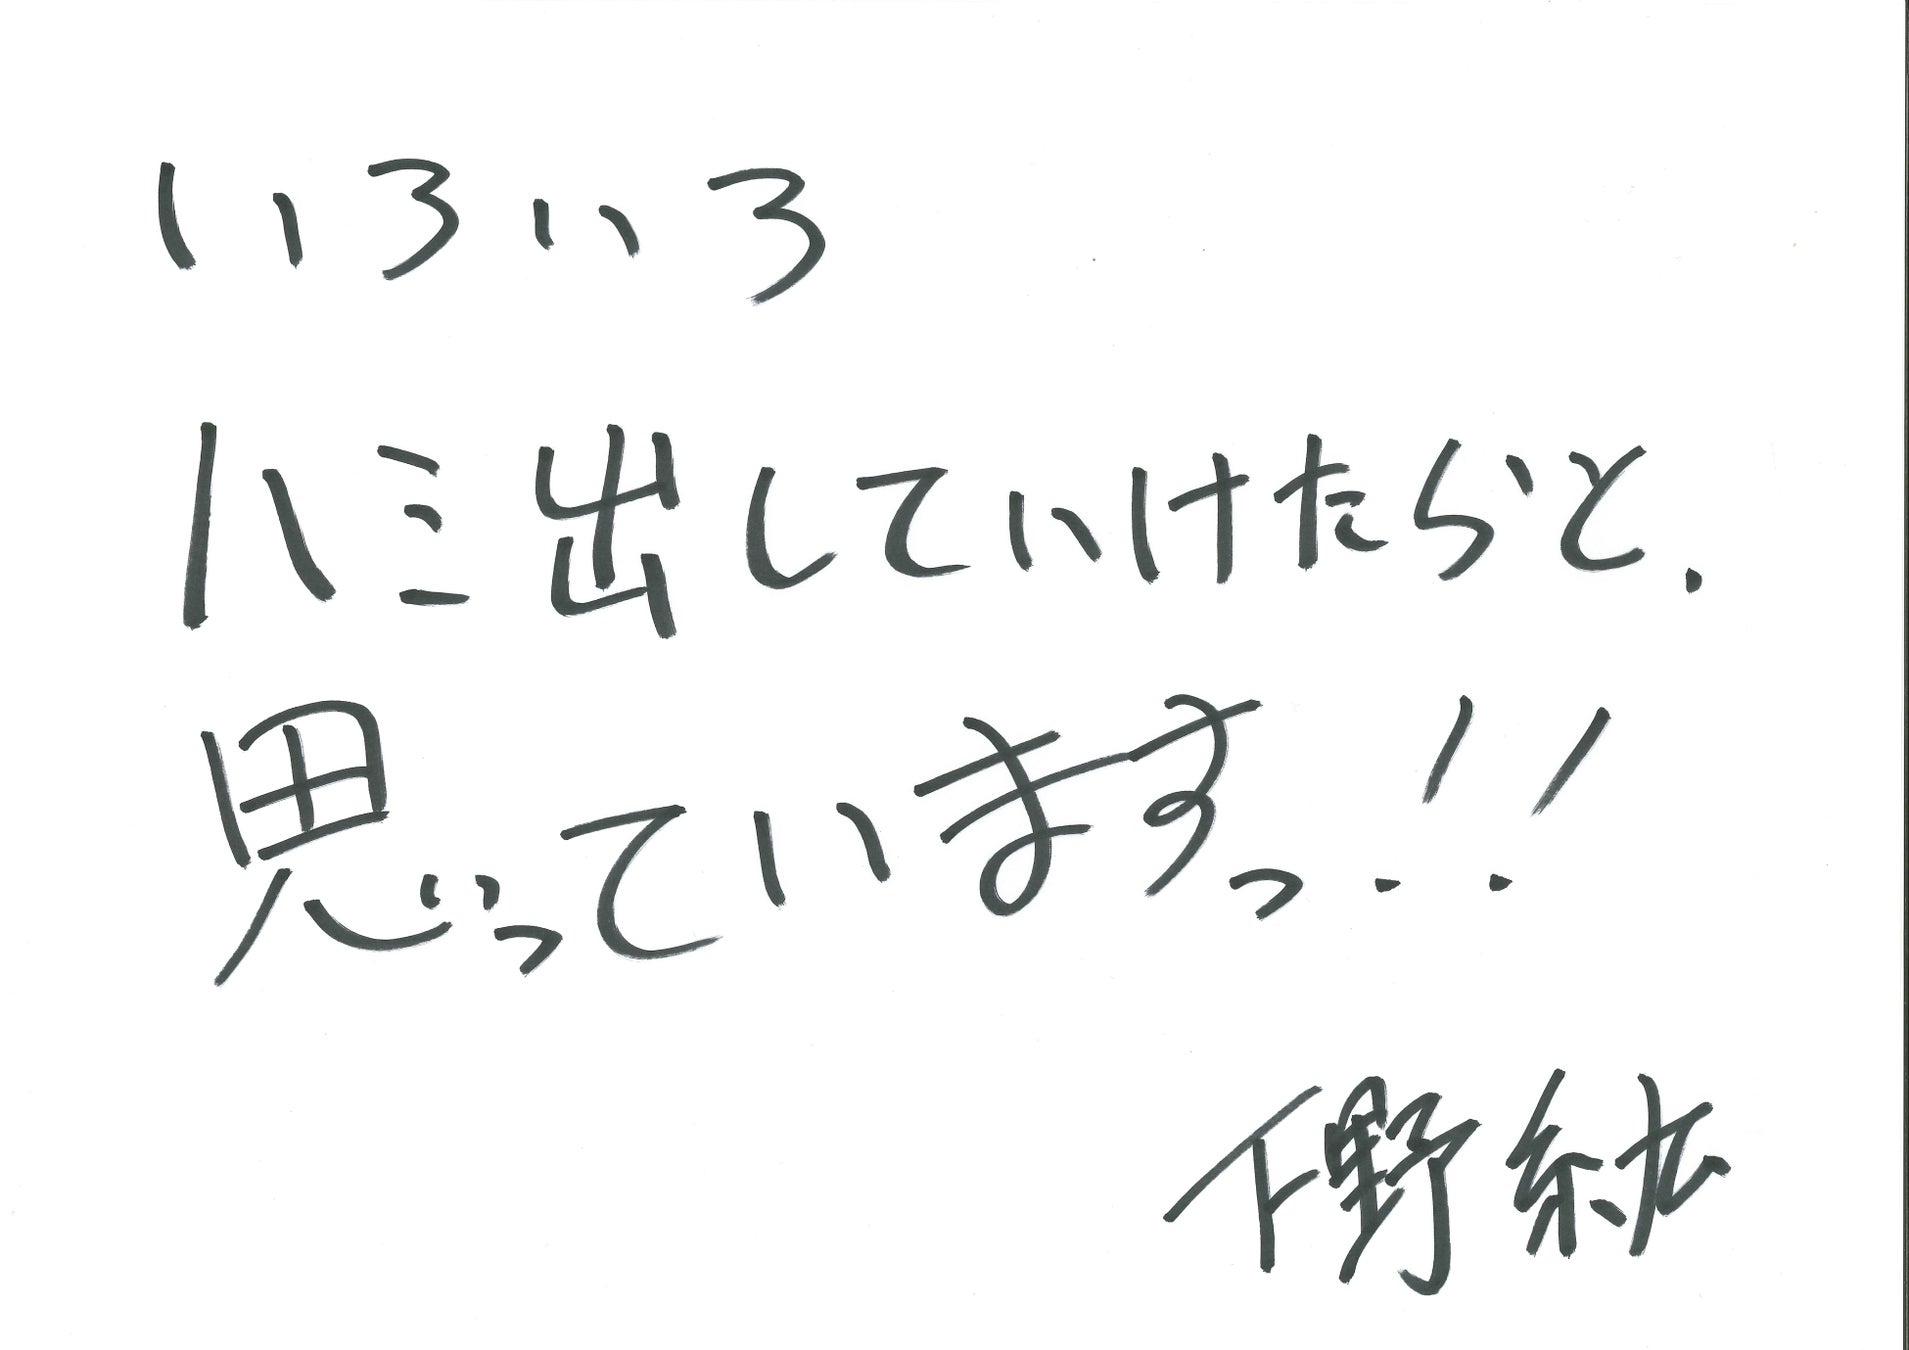 いろいろ
ハミ出していけたらと.
思っていますっ!!
下野紘